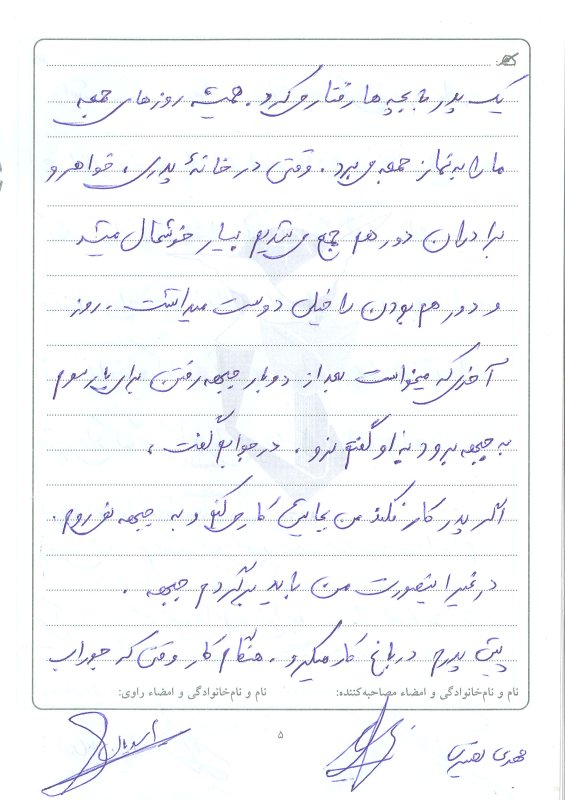 یک پدر با بچه ها رفتار می کرد. همیشه روزهای جمعه
ما را به نماز جمعه می برد. وقتی در خانهٔ پدری، خواهر و
برادران دور هم جمع می شدیم بسیار خوشحال میشد
و دور هم بودن را خیلی دوست میداشت. روز
آخری که میخواست بعد از دو بار جبهه رفتن برای بار سوم
به جبهه برود به او گفتم نرو. در جوابم گفت،
اگر پدر کار نکند من بجایش کار می کنم و به جبهه نمی روم.
در غیر اینصورت من باید برگردم جبهه.
پیش پدرم در باغ کار میکرد. هنگام کار وقتی که جوراب
نام و نام‌خانوادگی و امضاء مصاحبه‌کننده: نام و نام‌خانوادگی و امضاء راوی:
مهدی
۵